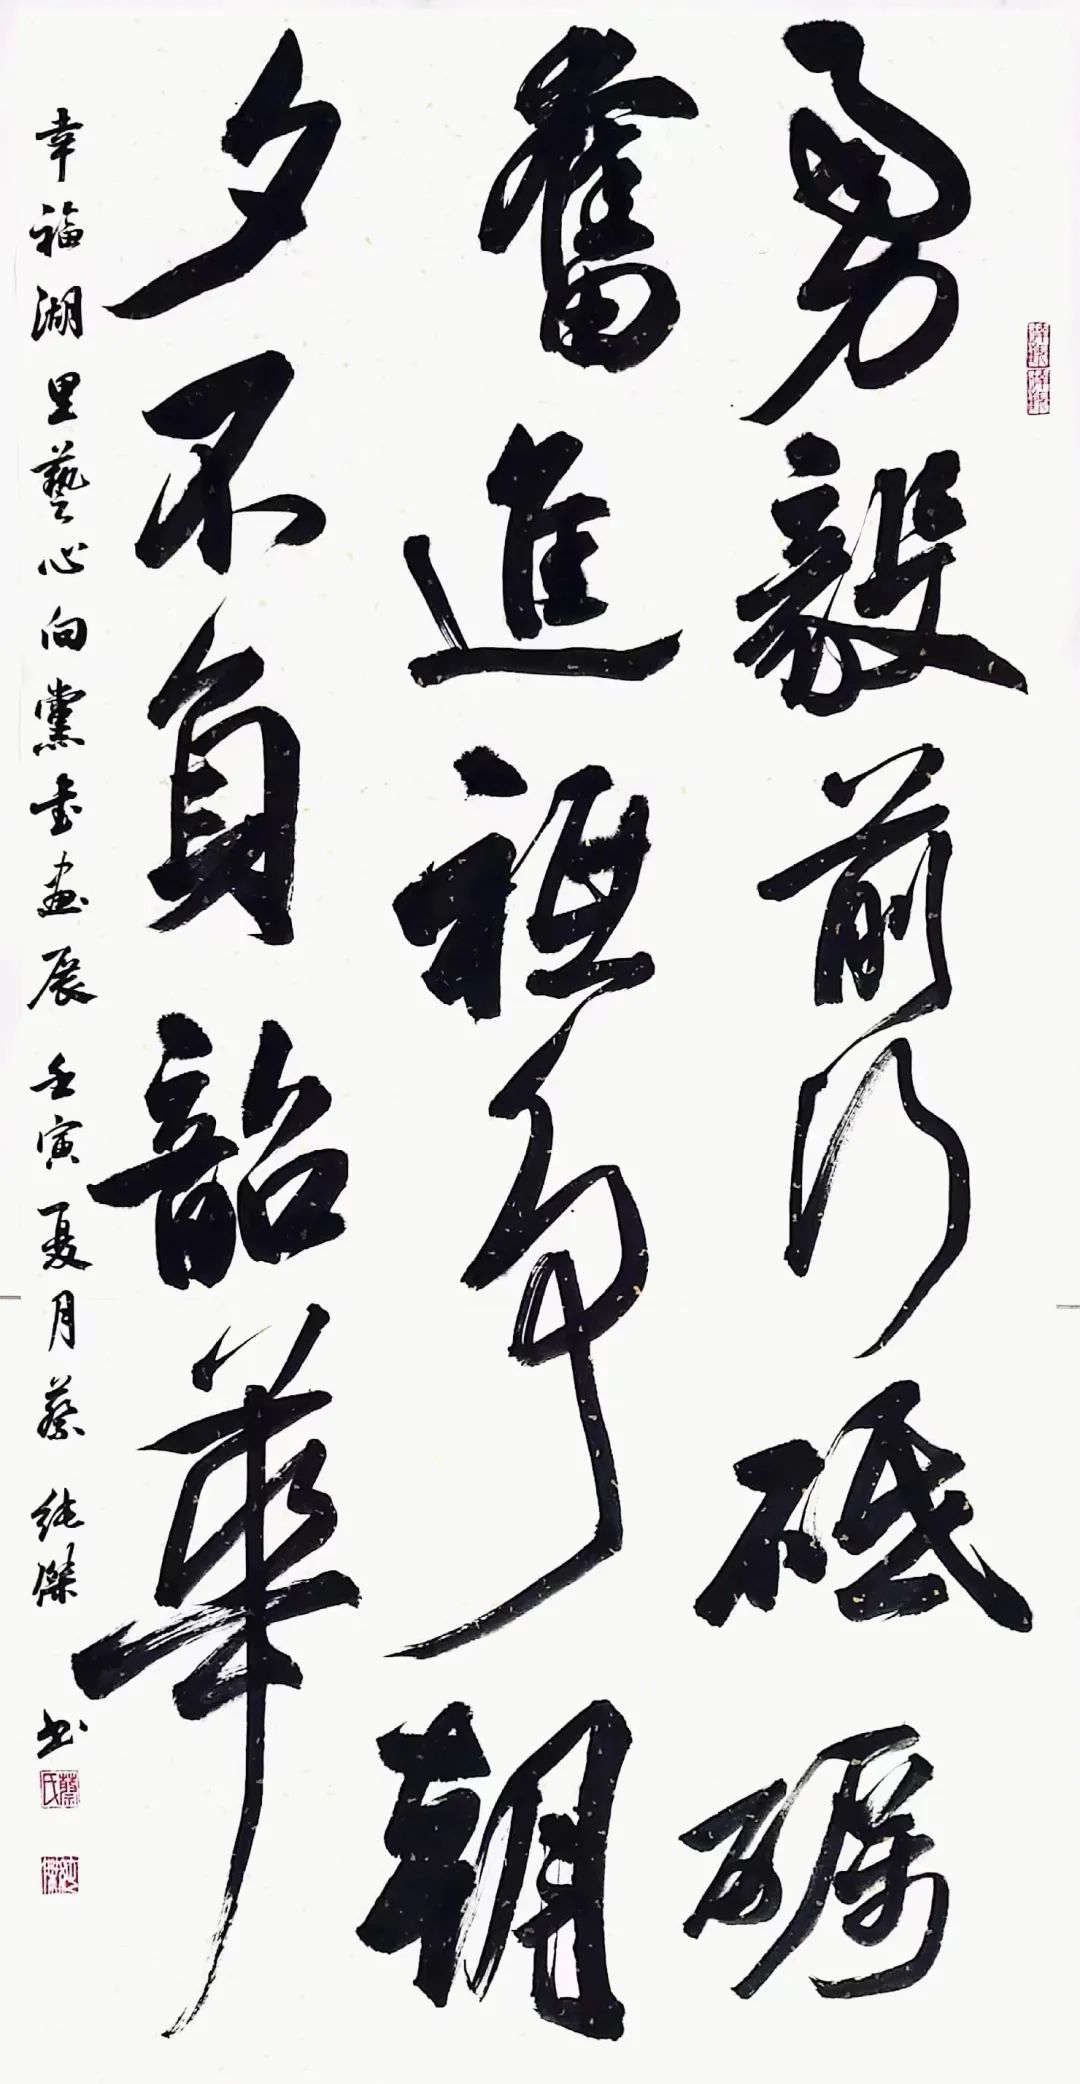 勇毅前行砥礪
奮進祗争朝
夕不負韶華
幸福湖里藝心向黨書畫展 壬寅夏月蔡純傑书
蔡氏